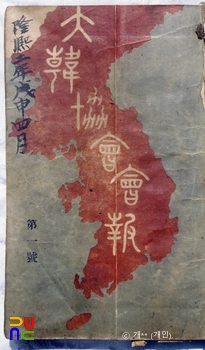 隆熙二年戊申四月
大韓協會會報
第一號
© 개** (개인)